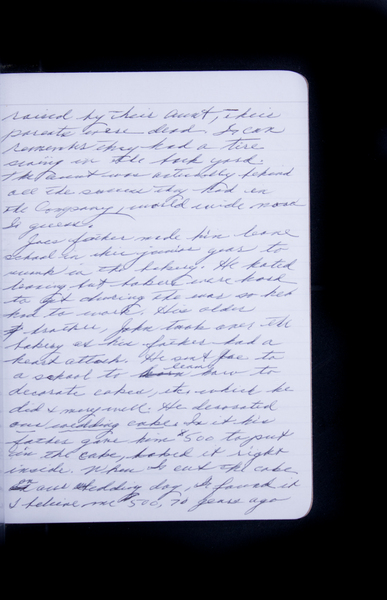 raised by their aunt, their
parents were dead. I can
remember they had a tire
swing in the back yard.
The aunt was actually behind
all the success they had in
the Company, world wide now
I guess.
Joes father made him leave
school in his junior year to
work in the bakery. He hated
leaving but bakers were hard
to get during the war so he'd
had to work. His older
brother, John took over the
bakery as his father had a
heart attack. He sent Joe to
a school to learn how to
decorate cakes, etc. which he
did & very well. He decorated
our wedding cake & in it his
father gave him $500 to put
in the cake, baked it right
inside. When I cut the cake
on our wedding day, I found it
& believe me $500, 70 years ago